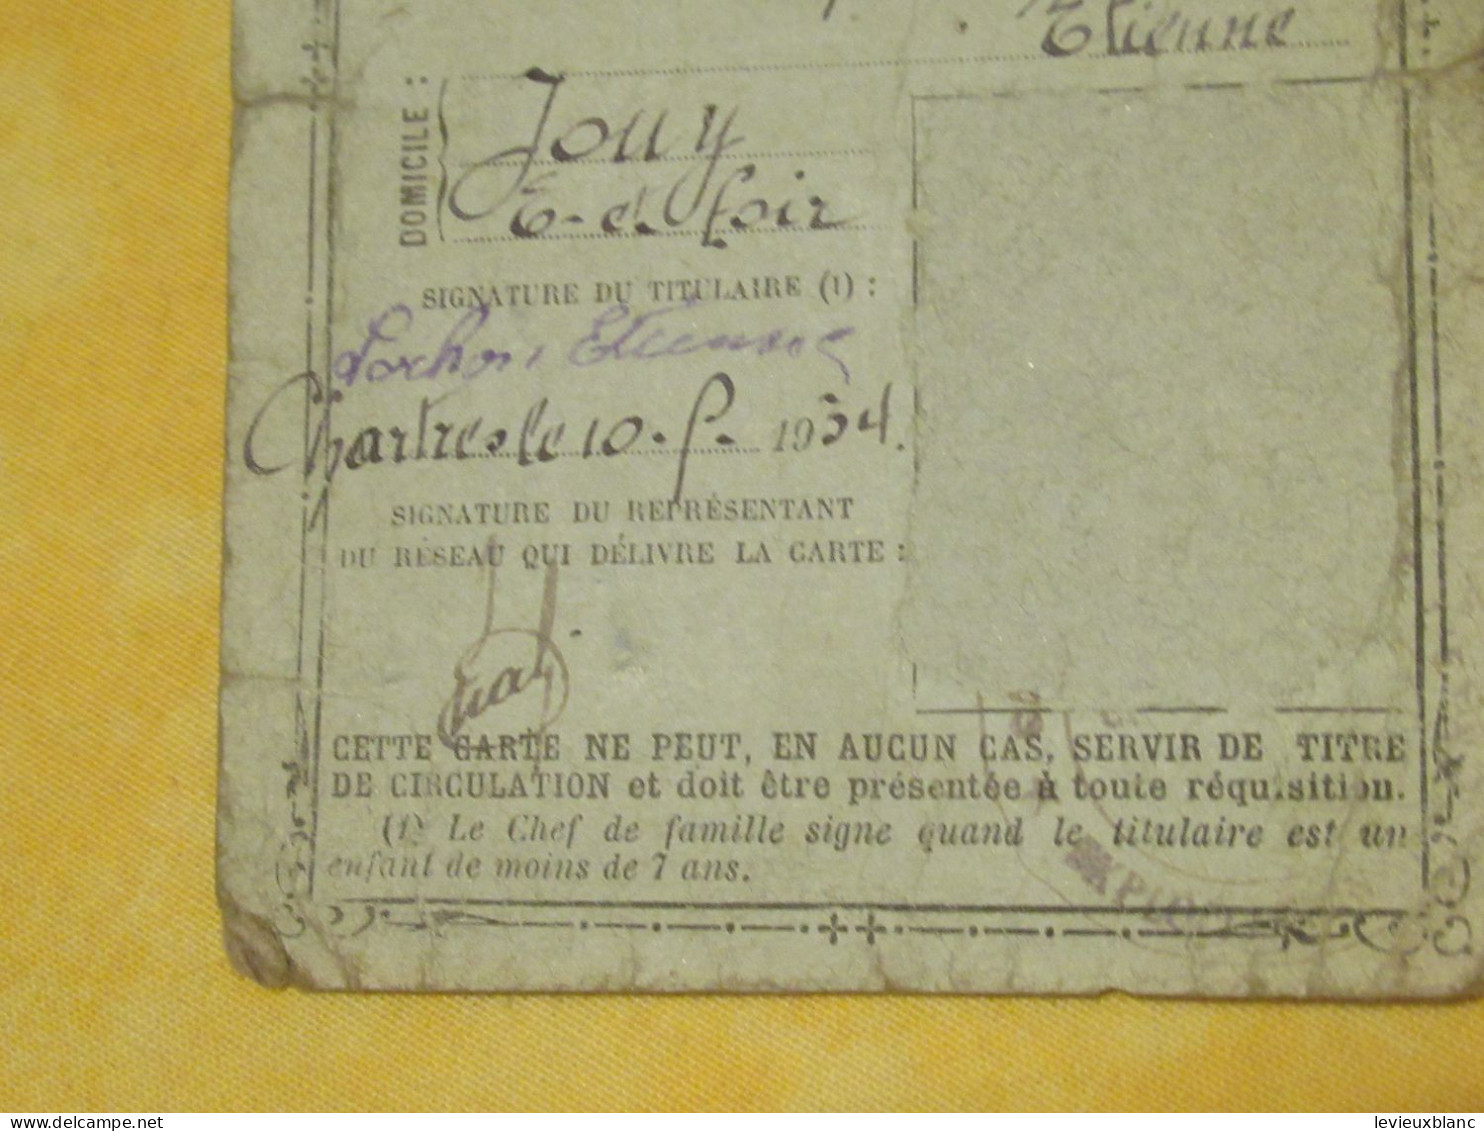 Etienne
DOMICILE :
Jouy
E-et-Loir
SIGNATURE DU TITULAIRE (1) :
Lochon Etienne
Chartres le 10-9-1934.
SIGNATURE DU REPRÉSENTANT
DU RÉSEAU QUI DÉLIVRE LA CARTE :
CETTE CARTE NE PEUT, EN AUCUN CAS, SERVIR DE TITRE
DE CIRCULATION et doit être présentée à toute réquisition.
(1) Le Chef de famille signe quand le titulaire est un
enfant de moins de 7 ans.
levieuxblanc